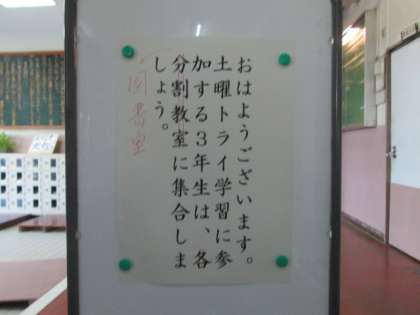 おはようございます。
土曜トライ学習に参
加する3年生は、各
分割教室に集合しま
しょう。
図書室